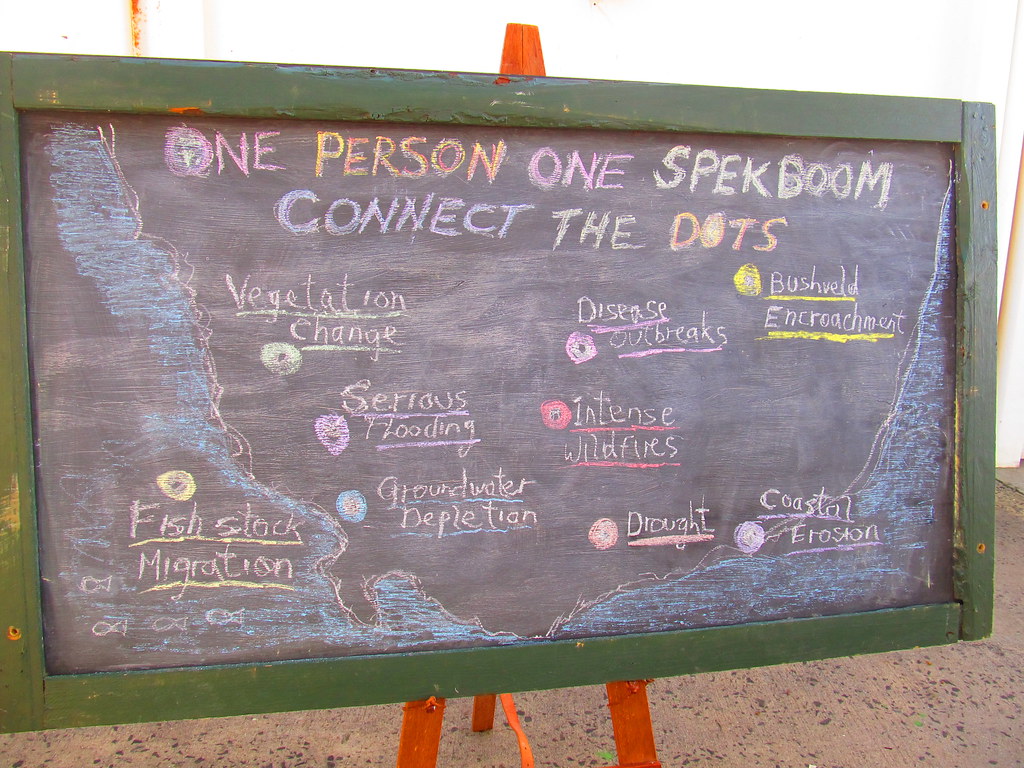 ONE PERSON ONE SPEKBOOM
CONNECT THE DOTS
Vegetation
Change
Disease
outbreaks
Bushveld
Encroachment
Serious
Flooding
Intense
Wildfires
Groundwater
Depletion
Fish stock
Migration
Drought
Coastal
Erosion